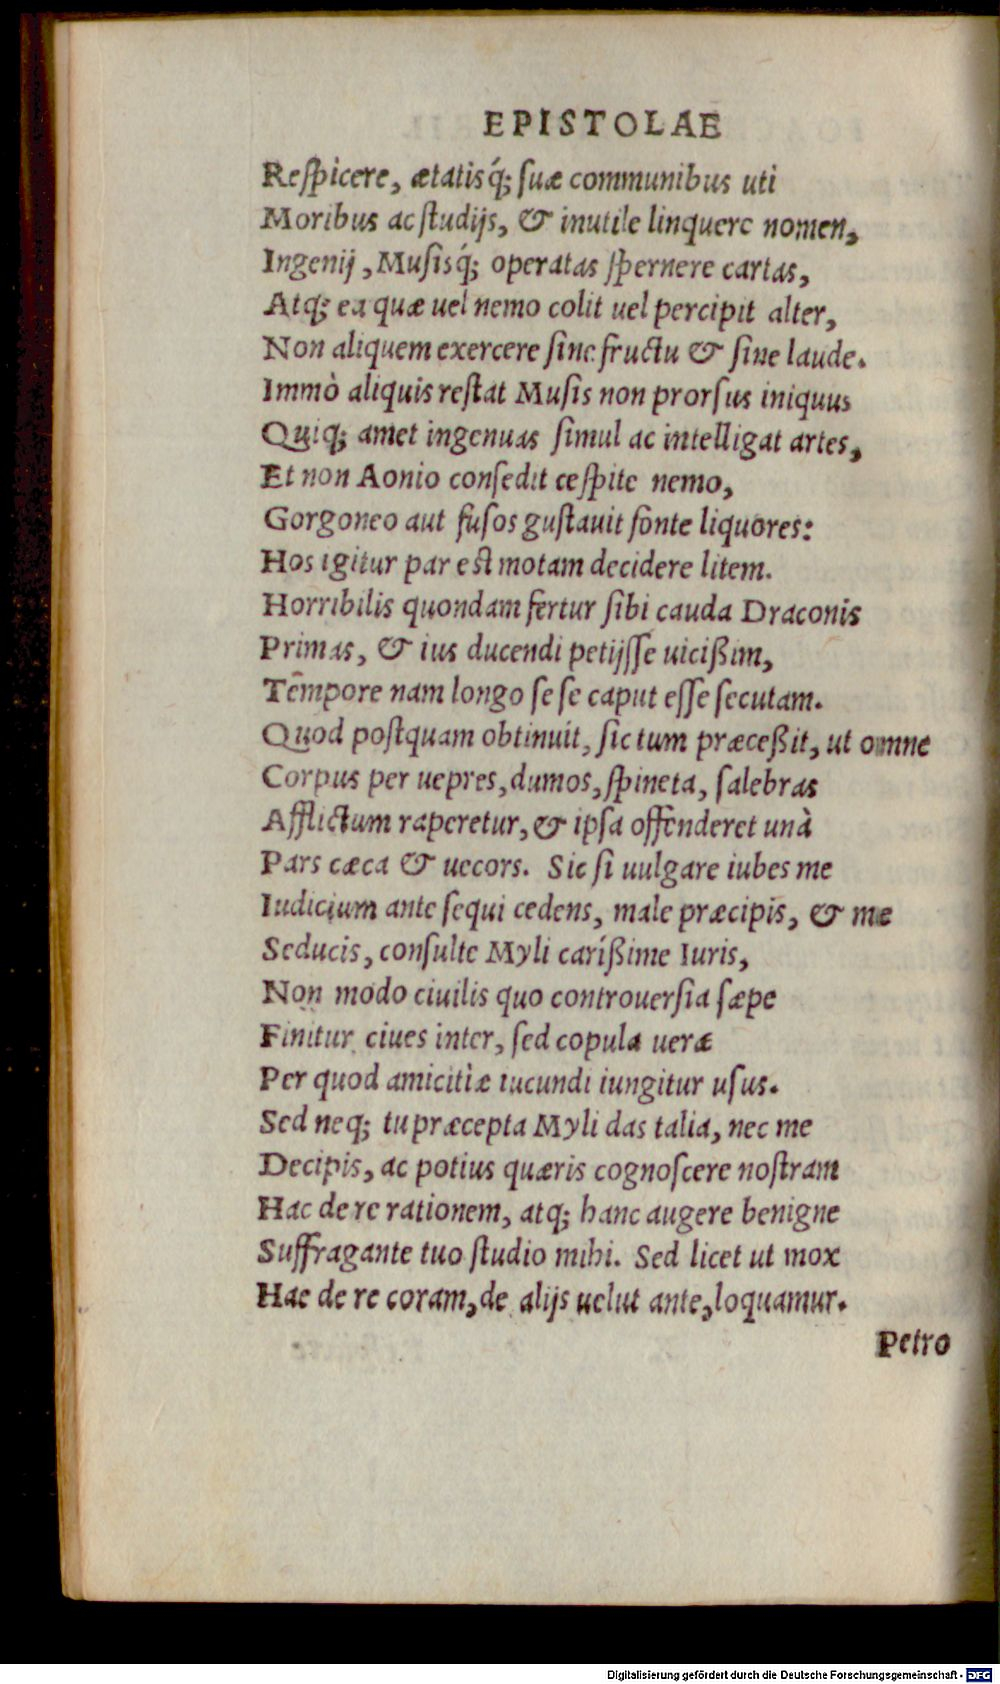 EPISTOLAE
Reſpicere, ætatisq́; ſuæ communibus uti
Moribus ac ſtudijs, & inutile linquere nomen,
Ingenij, Muſisq́; operatas ſpernere cartas,
Atq; ea quæ uel nemo colit uel percipit alter,
Non aliquem exercere ſine fructu & ſine laude.
Immò aliquis reſtat Muſis non prorſus iniquus
Quiq; amet ingenuas ſimul ac intelligat artes,
Et non Aonio conſedit ceſpite nemo,
Gorgoneo aut fuſos guſtauit fonte liquores:
Hos igitur par eſt motam decidere litem.
Horribilis quondam fertur ſibi cauda Draconis
Primas, & ius ducendi petijſſe uicißim,
Tēmpore nam longo ſe ſe caput eſſe ſecutam.
Quod poſtquam obtinuit, ſic tum præceßit, ut omne
Corpus per uepres, dumos, ſpineta, ſalebras
Afflictum raperetur, & ipſa offenderet unà
Pars cæca & uecors. Sic ſi uulgare iubes me
Iudicium ante ſequi cedens, male præcipis, & me
Seducis, conſulte Myli caríßime Iuris,
Non modo ciuilis quo controuerſia ſæpe
Finitur ciues inter, ſed copula ueræ
Per quod amicitiæ iucundi iungitur uſus.
Sed neq; tu præcepta Myli das talia, nec me
Decipis, ac potius quæris cognoſcere noſtram
Hac de re rationem, atq; hanc augere benigne
Suffragante tuo ſtudio mihi. Sed licet ut mox
Hac de re coram, de alijs uelut ante, loquamur.
Petro
Digitalisierung gefördert durch die Deutsche Forschungsgemeinschaft - DFG